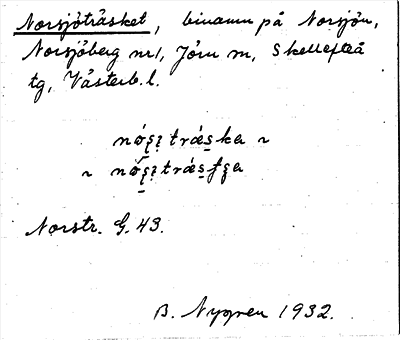 Norsjöträsket, binamn på Norsjön,
Norsjöberg nr1, Jörn m, Skellefteå
tg, Västerb. l.
Norstr. G. 43.
B. Nygren 1932.